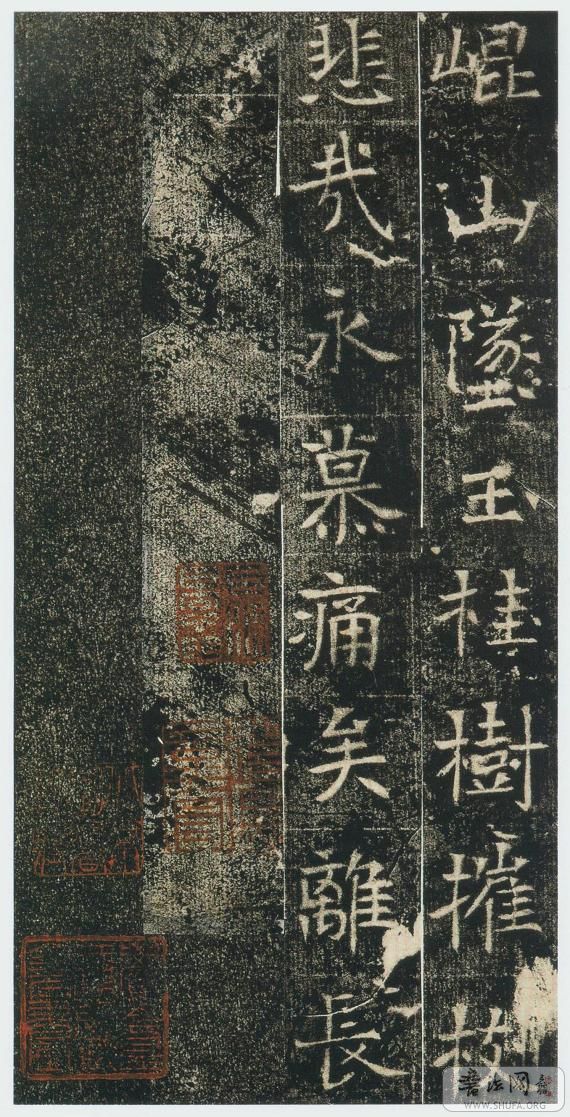 崐山墜玉桂樹摧枝
悲哉永慕痛矣離長
書法网
WWW.SHUFA.ORG